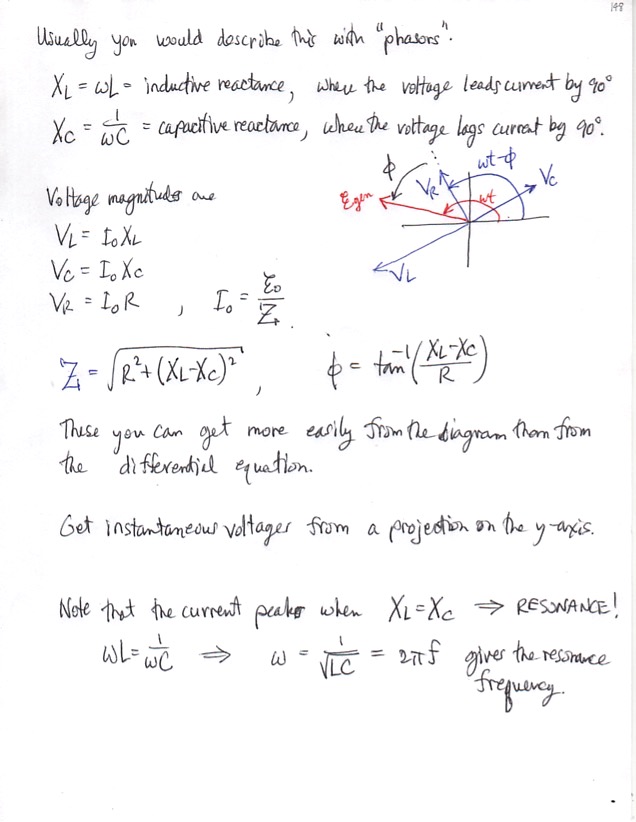 148
Usually you would describe this with "phasors".
X_L = ωL = inductive reactance, where the voltage leads current by 90°
X_C = 1/ωC = capacitive reactance, where the voltage lags current by 90°.
ϕ
ωt-ϕ
V_R
V_C
Egen
ωt
V_L
Voltage magnitudes are
V_L = I₀X_L
V_C = I₀X_C
V_R = I₀R , I₀ = ℰ₀/Z.
Z = √(R²+(X_L-X_C)²) , ϕ = tan⁻¹((X_L-X_C)/R)
These you can get more easily from the diagram than from
the differential equation.
Get instantaneous voltages from a projection on the y-axis.
Note that the current peaks when X_L=X_C ⇒ RESONANCE!
ωL = 1/ωC ⇒ ω = 1/√LC = 2πf gives the resonance
frequency.